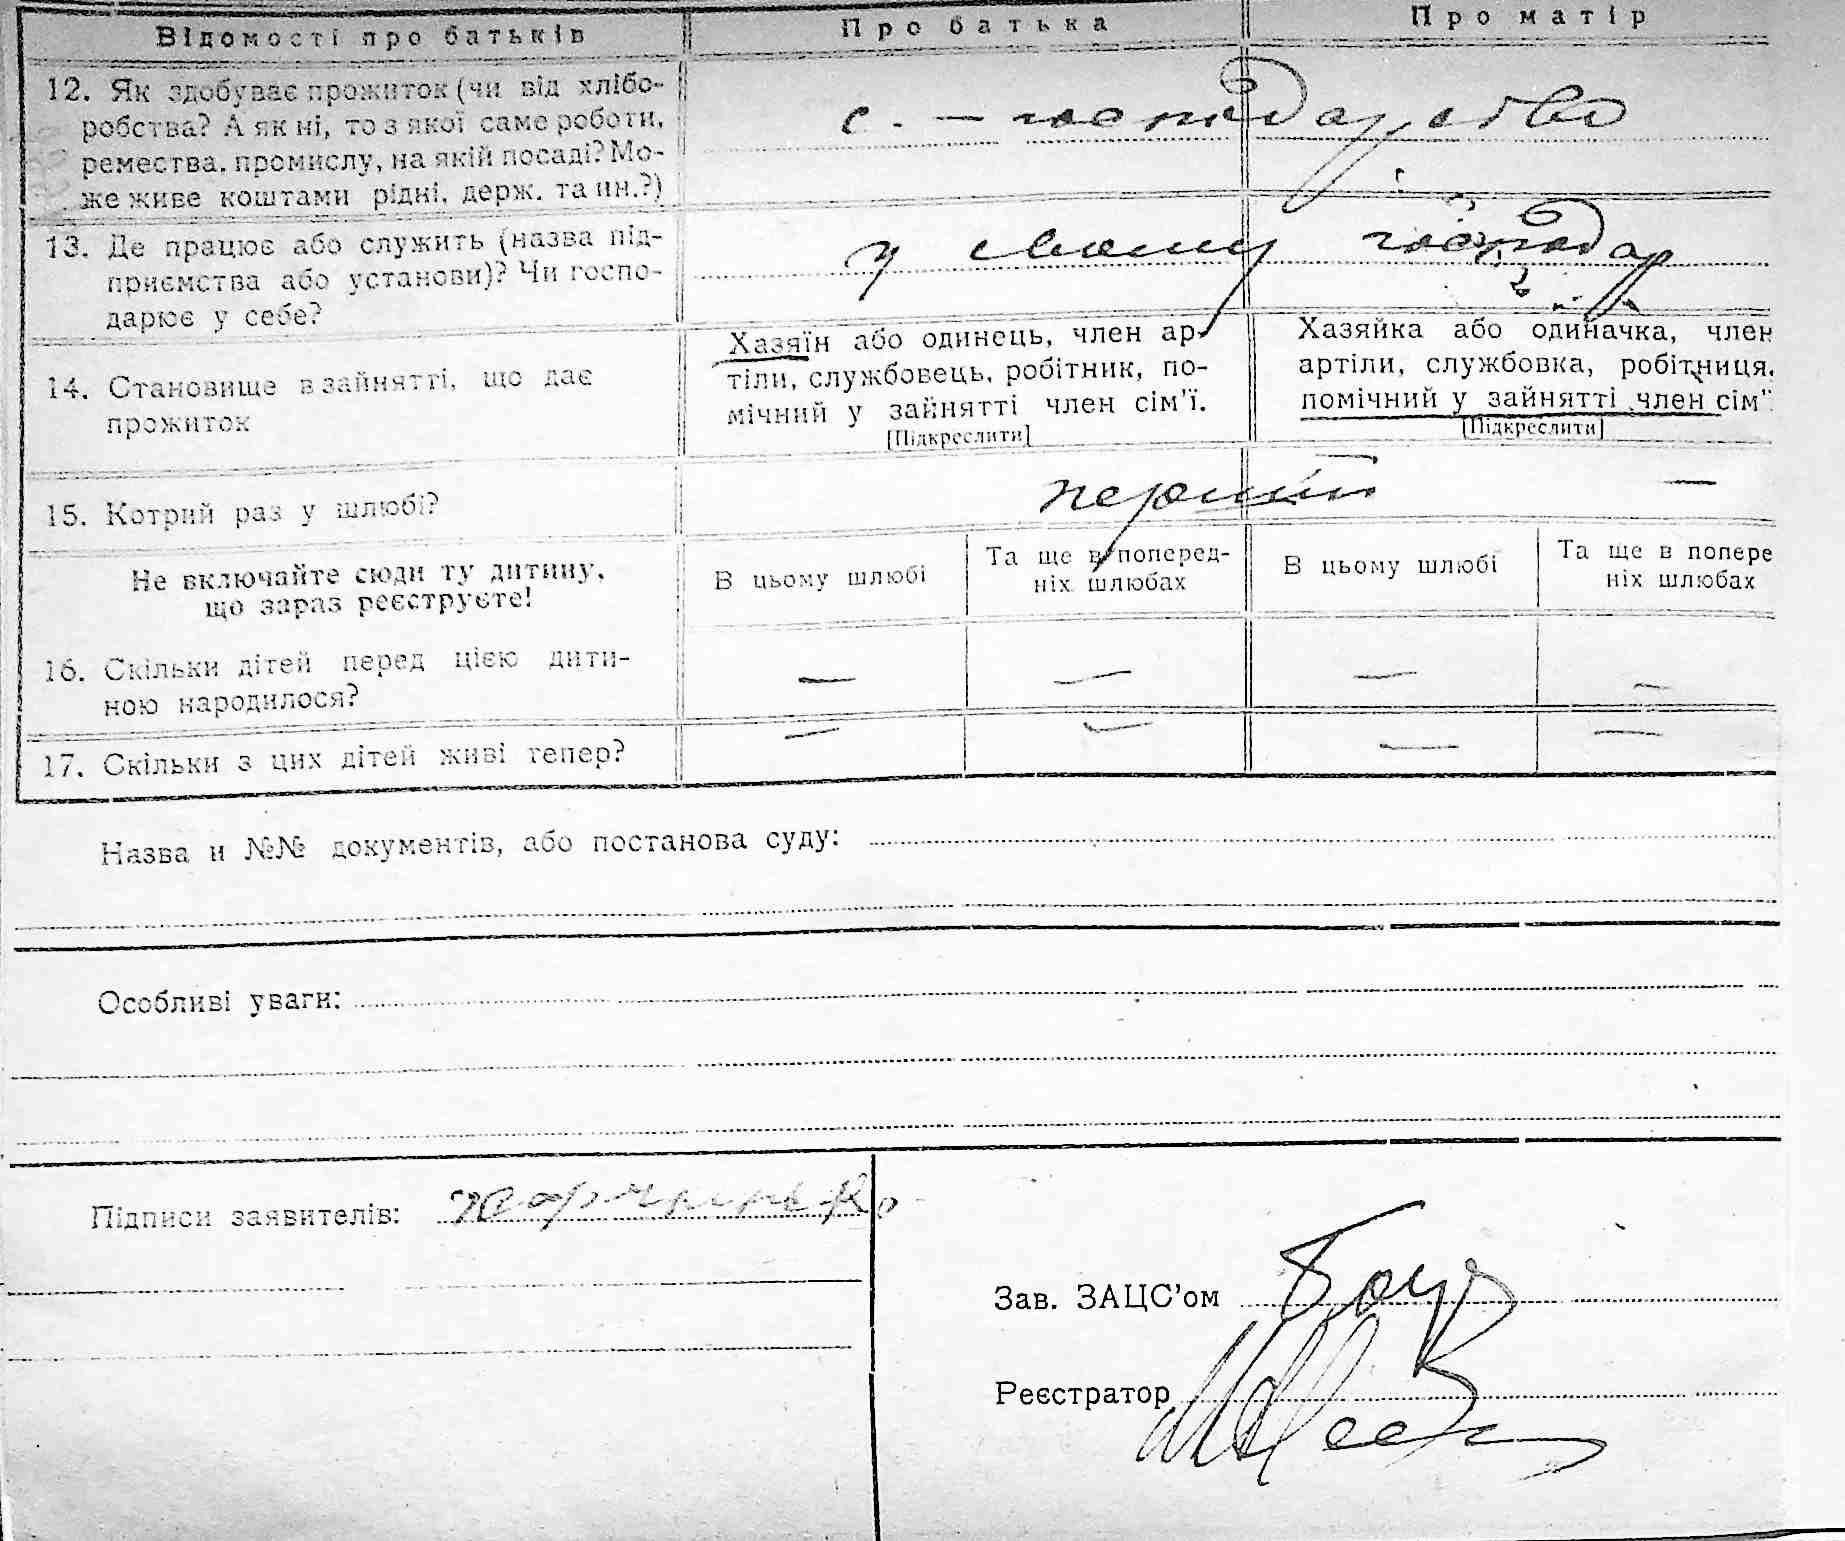 Відомості про батьків Про батька Про матір
12. Як здобуває прожиток (чи від хлібо-
робства? А як ні, то з якої саме роботи,
ремества, промислу, на якій посаді? Мо-
же живе коштами рідні, держ. та ин.?)
с. – господарство
13. Де працює або служить (назва під-
приємства або установи)? Чи госпо-
дарює у себе?
у своему господар
14. Становище в зайнятті, що дає
прожиток
Хазяїн або одинець, член ар-
тіли, службовець, робітник, по-
мічний у зайнятті член сім'ї.
[Підкреслити]
Хазяйка або одиначка, член
артіли, службовка, робітниця,
помічний у зайнятті член сім'
[Підкреслити]
15. Котрий раз у шлюбі?
перший —
Не включайте сюди ту дитину,
що зараз реєструєте!
В цьому шлюбі
Та ще в поперед-
ніх шлюбах
В цьому шлюбі
Та ще в попере
ніх шлюбах
16. Скільки дітей перед цією дити-
ною народилося?
— — — —
17. Скільки з цих дітей живі тепер?
— — — —
Назва и №№ документів, або постанова суду:
Особливі уваги:
Підписи заявителів:
Зав. ЗАЦС'ом
Реєстратор